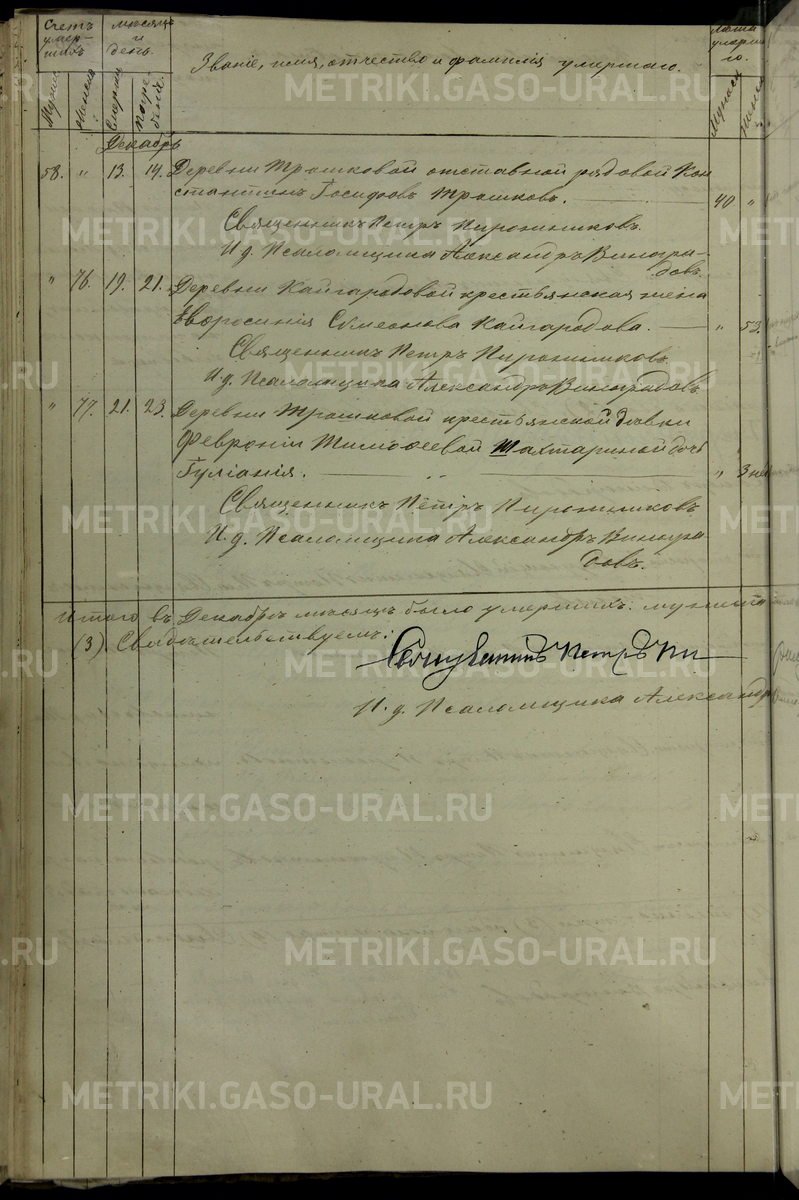 Счетъ умер- шихъ
Мѣсяцъ и день.
Званіе, имя, отчество и фамилія умершаго.
Лѣта умерша го.
Мужск.
Женска
Смерти
Погре- бенія.
Мужеск
Женск
Декабрь
58. " 13. 14. Деревни Трошковой отставной рядовой Кон
стантинъ Іосифовъ Трошковъ. 40 "
Священникъ Петръ Пирожниковъ.
И. д. Псаломщика Александръ Виногра-
довъ.
" 76. 19. 21. Деревни Кайгородовой крестьянская жена
Евфросинія Симеонова Кайгородова. " 53.
Священникъ Петръ Пирожниковъ
И. д. Псаломщика Александръ Виноградовъ
" 77. 21. 23. Деревни Трошковой крестьянской дѣвки
Февроніи Тимофеевой Шахтариной дочь
Іуліанія. " 3 не
Священникъ Петръ Пирожниковъ
И. д. Псаломщика Александръ Виногра
довъ.
Итого въ Декабрѣ мѣсяцѣ было умершихъ: мужеска
(3) Свидѣтельствуемъ:
Священникъ Петръ Пи
И. д. Псаломщика Александръ
METRIKI.GASO-URAL.RU